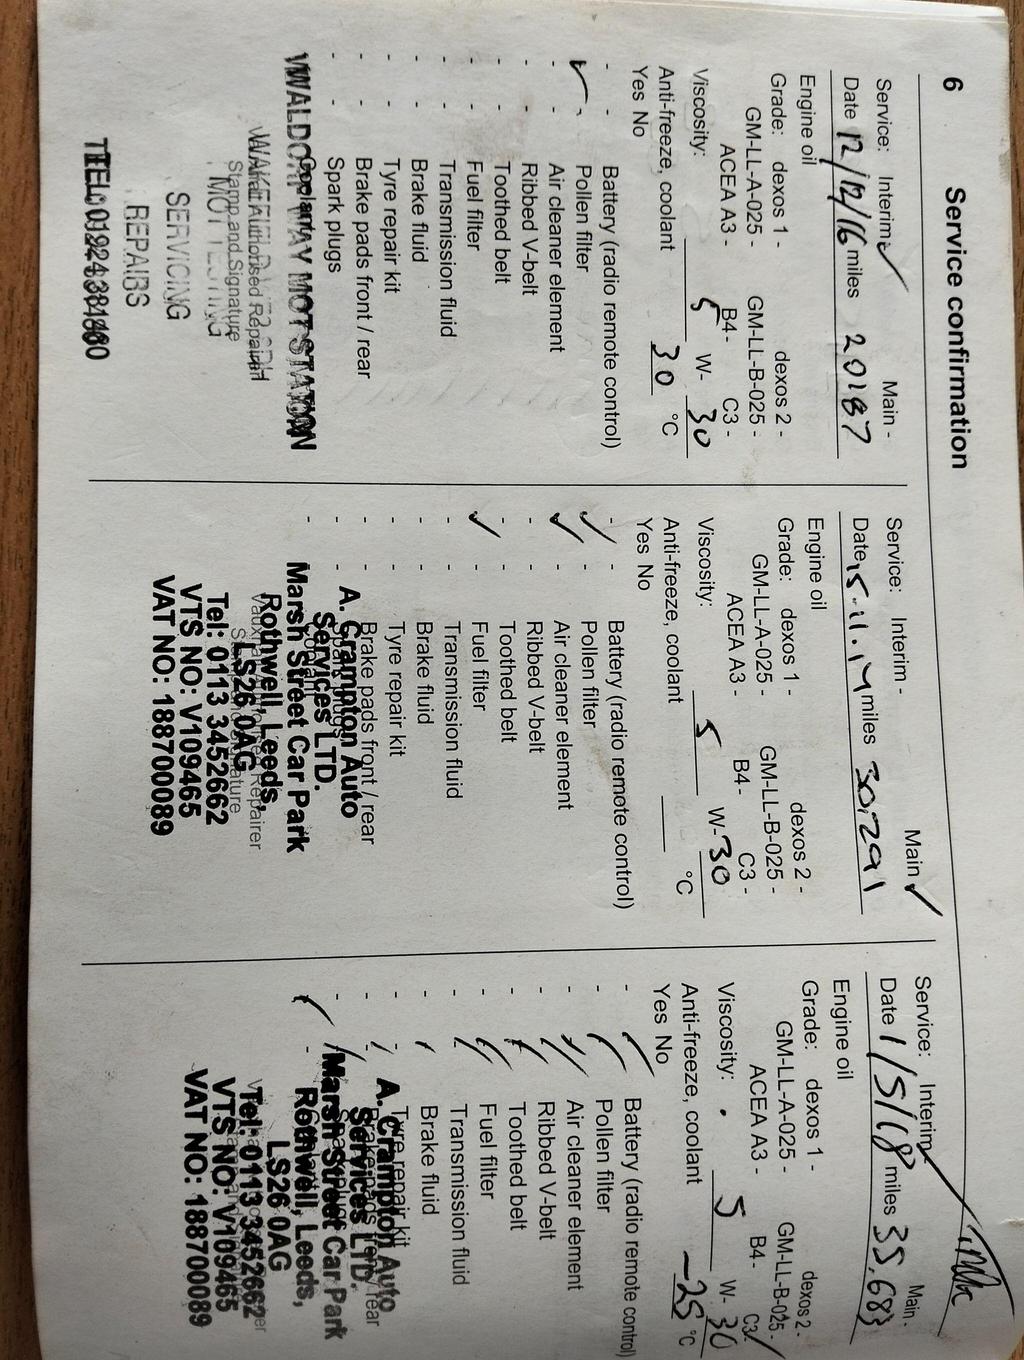 6
Service confirmation
Service: Interim ✓ Main -
Date 12/12/16 miles 20187
Engine oil
Grade: dexos 1 - dexos 2 -
GM-LL-A-025 - GM-LL-B-025 -
ACEA A3 - B4 - C3 -
Viscosity: 5 W- 30
Anti-freeze, coolant 30 °C
Yes No
- - Battery (radio remote control)
✓ - Pollen filter
- - Air cleaner element
- - Ribbed V-belt
- - Toothed belt
- - Fuel filter
- - Transmission fluid
- - Brake fluid
- - Tyre repair kit
- - Brake pads front / rear
- - Spark plugs
WAY MOT STATION
Authorised Repairer
Stamp and Signature
MOT TESTING
SERVICING
REPAIRS
TEL: 01924
Service: Interim - Main ✓
Date 15.11.17 miles 30,291
Engine oil
Grade: dexos 1 - dexos 2 -
GM-LL-A-025 - GM-LL-B-025 -
ACEA A3 - B4 - C3 -
Viscosity: 5 W- 30
Anti-freeze, coolant °C
Yes No
- - Battery (radio remote control)
✓ - Pollen filter
✓ - Air cleaner element
- - Ribbed V-belt
- - Toothed belt
✓ - Fuel filter
- - Transmission fluid
- - Brake fluid
- - Tyre repair kit
- - Brake pads front / rear
A. Crampton Auto
Services LTD.
Marsh Street Car Park
Rothwell, Leeds,
LS26 0AG
Tel: 0113 3452662
VTS NO: V109465
VAT NO: 188700089
Service: Interim ✓ Main -
Date 1/5/18 miles 35,683
Engine oil
Grade: dexos 1 - dexos 2 -
GM-LL-A-025 - GM-LL-B-025 -
ACEA A3 - B4 - C3 ✓
Viscosity: 5 W- 30
Anti-freeze, coolant -25 °C
Yes No
- ✓ Battery (radio remote control)
- ✓ Pollen filter
- ✓ Air cleaner element
- ✓ Ribbed V-belt
- ✓ Toothed belt
- ✓ Fuel filter
- ✓ Transmission fluid
- ✓ Brake fluid
- ✓ Tyre repair kit
A. Crampton Auto
Services LTD.
Marsh Street Car Park
Rothwell, Leeds,
LS26 0AG
Tel: 0113 3452662
VTS NO: V109465
VAT NO: 188700089